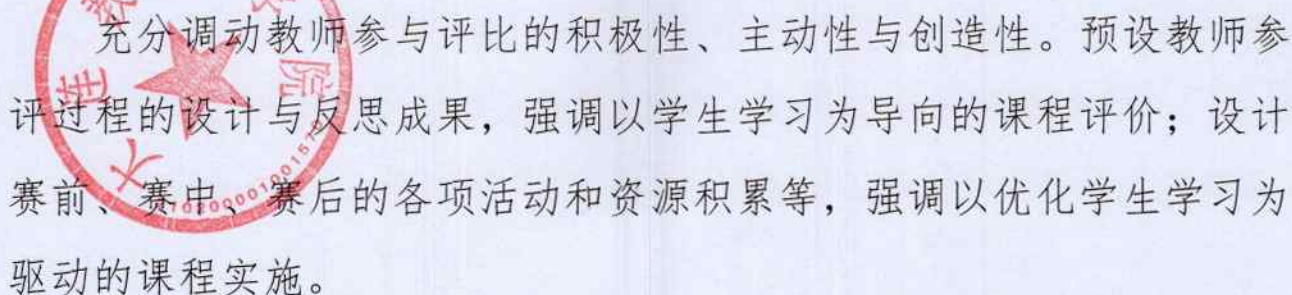 充分调动教师参与评比的积极性、主动性与创造性。预设教师参
评过程的设计与反思成果，强调以学生学习为导向的课程评价；设计
赛前、赛中、赛后的各项活动和资源积累等，强调以优化学生学习为
驱动的课程实施。
大连教
院